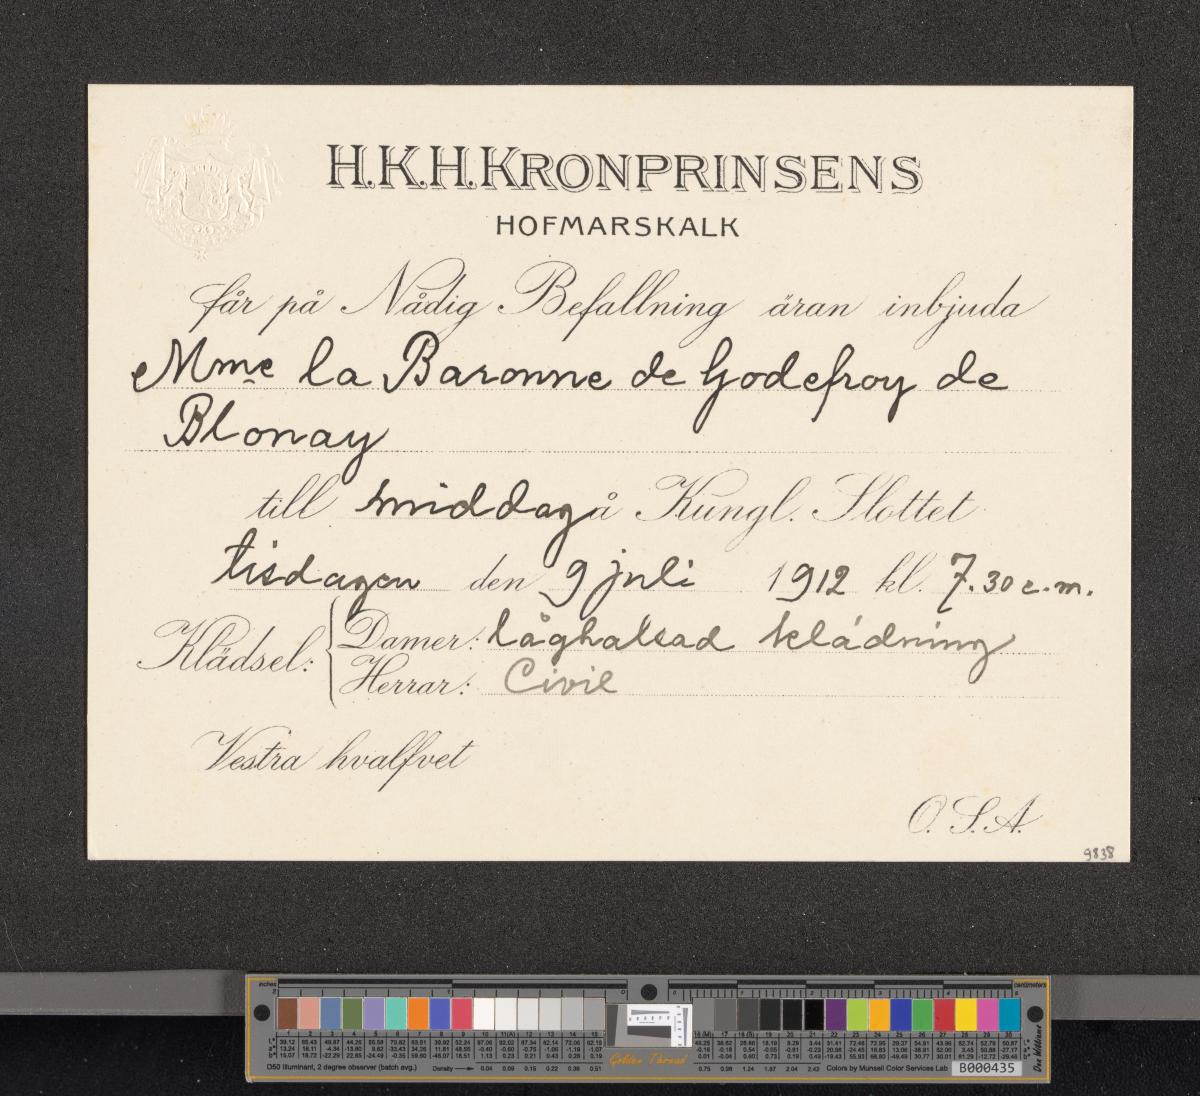 H.K.H. KRONPRINSENS
HOFMARSKALK
får på Nådig Befallning äran inbjuda
Mme la Baronne de Godefroy de
Blonay
till middag å Kungl. Slottet
tisdagen den 9 juli 1912 kl. 7.30 e.m.
Klädsel: Damer: låghalsad klädning
Herrar: Civil
Vestra hvalfvet
O. S. A.
9838
inches
centimeters
D50 Illuminant, 2 degree observer (batch avg.)
Density
0.04 0.09 0.15 0.22 0.36 0.51
Golden Thread
0.75 0.98 1.24 1.67 2.04 2.42
Colors by Munsell Color Services Lab
B000435